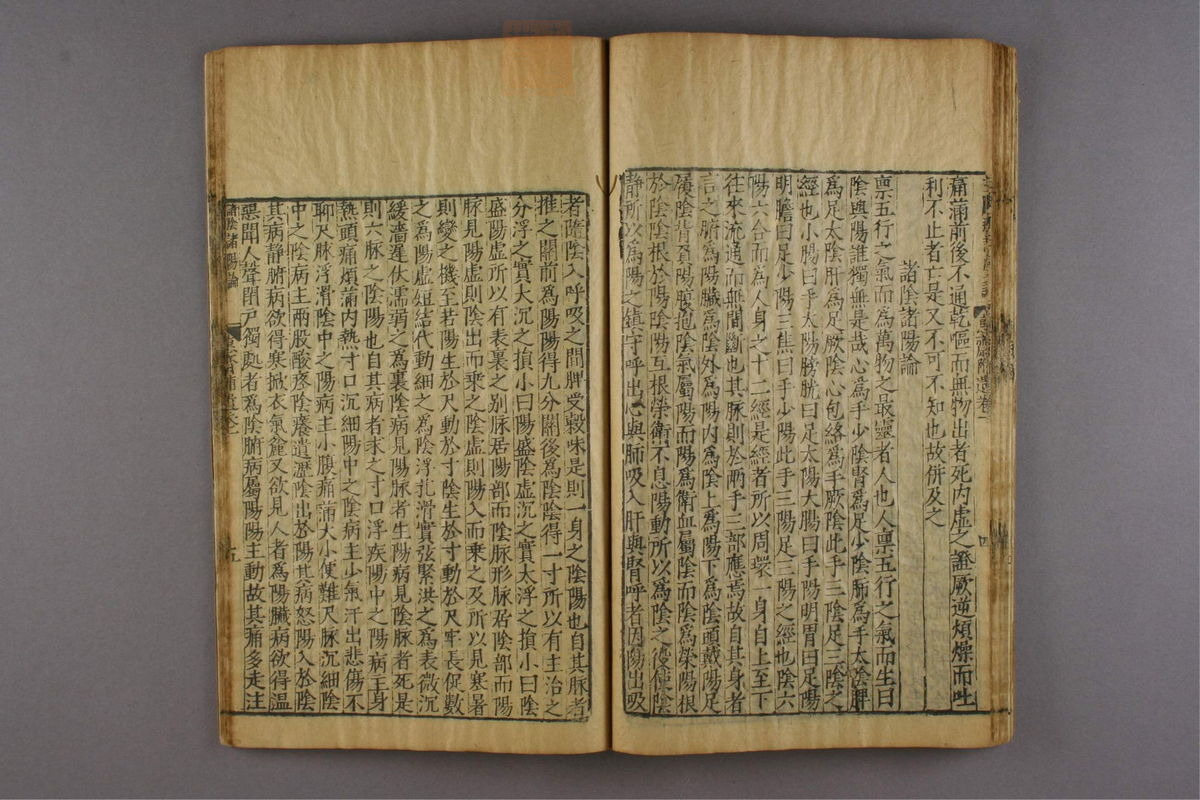 痛滿前後不通乾嘔而無物出者死内虛之證厥逆煩燥而吐
利不止者亡是又不可不知也故併及之
諸陰諸陽論
禀五行之氣而為萬物之最靈者人也人禀五行之氣而生曰
陰與陽誰獨無是哉心為手少陰腎為足少陰肺為手太陰脾
為足太陰肝為足厥陰心包絡為手厥陰此手三陰足三陰之
經也小腸曰手太陽膀胱曰足太陽大腸曰手陽明胃曰足陽
明膽曰足少陽三焦曰手少陽此手三陽足三陽之經也陰六
陽六合而為人身之十二經是經者所以周環一身自上至下
往來流通而無間斷也其脉則於兩手三部應焉故自其身者
言之腑為陽臟為陰外為陽内為陰上為陽下為陰頭戴陽足
履陰背負陽腹抱陰氣屬陽而陽為衛血屬陰而陰為榮陽根
於陰陰根於陽陰陽互根榮衛不息陽動所以為陰之役使陰
靜所以為陽之鎮守呼出心與肺吸入肝與腎呼者因陽出吸
者隨陰入呼吸之間脾受穀味是則一身之陰陽也自其脉者
推之關前為陽陽得九分關後為陰陰得一寸所以有主治之
分浮之實大沉之損小曰陽盛陰虛沉之實大浮之損小曰陰
盛陽虛所以有表裏之別脉居陽部而陰脉形脉居陰部而陽
脉見陽虛則陰出而乘之陰虛則陽入而乘之及所以見寒暑
則變之機至若陽生於尺動於寸陰生於寸動於尺牢長促數
之為陽虛短結代動細之為陰浮芤滑實弦緊洪之為表微沉
緩濇遲伏濡弱之為裏陰病見陽脉者生陽病見陰脉者死是
則六脉之陰陽也自其病者求之寸口浮疾陽中之陽病主身
熱頭痛煩滿内熱寸口沉細陽中之陰病主少氣汗出悲傷不
聊尺脉浮滑陰中之陽病主小腹痛滿大小便難尺脉沉細陰
中之陰病主兩股酸疼陰癢遺瀝陰出於陽其病怒陽入於陰
其病靜腑病欲得寒掀衣氣麄又欲見人者為陽臟病欲得溫
惡聞人聲閉戶獨處者為陰腑病屬陽陽主動故其痛多走注
諸陰諸陽論
四
五